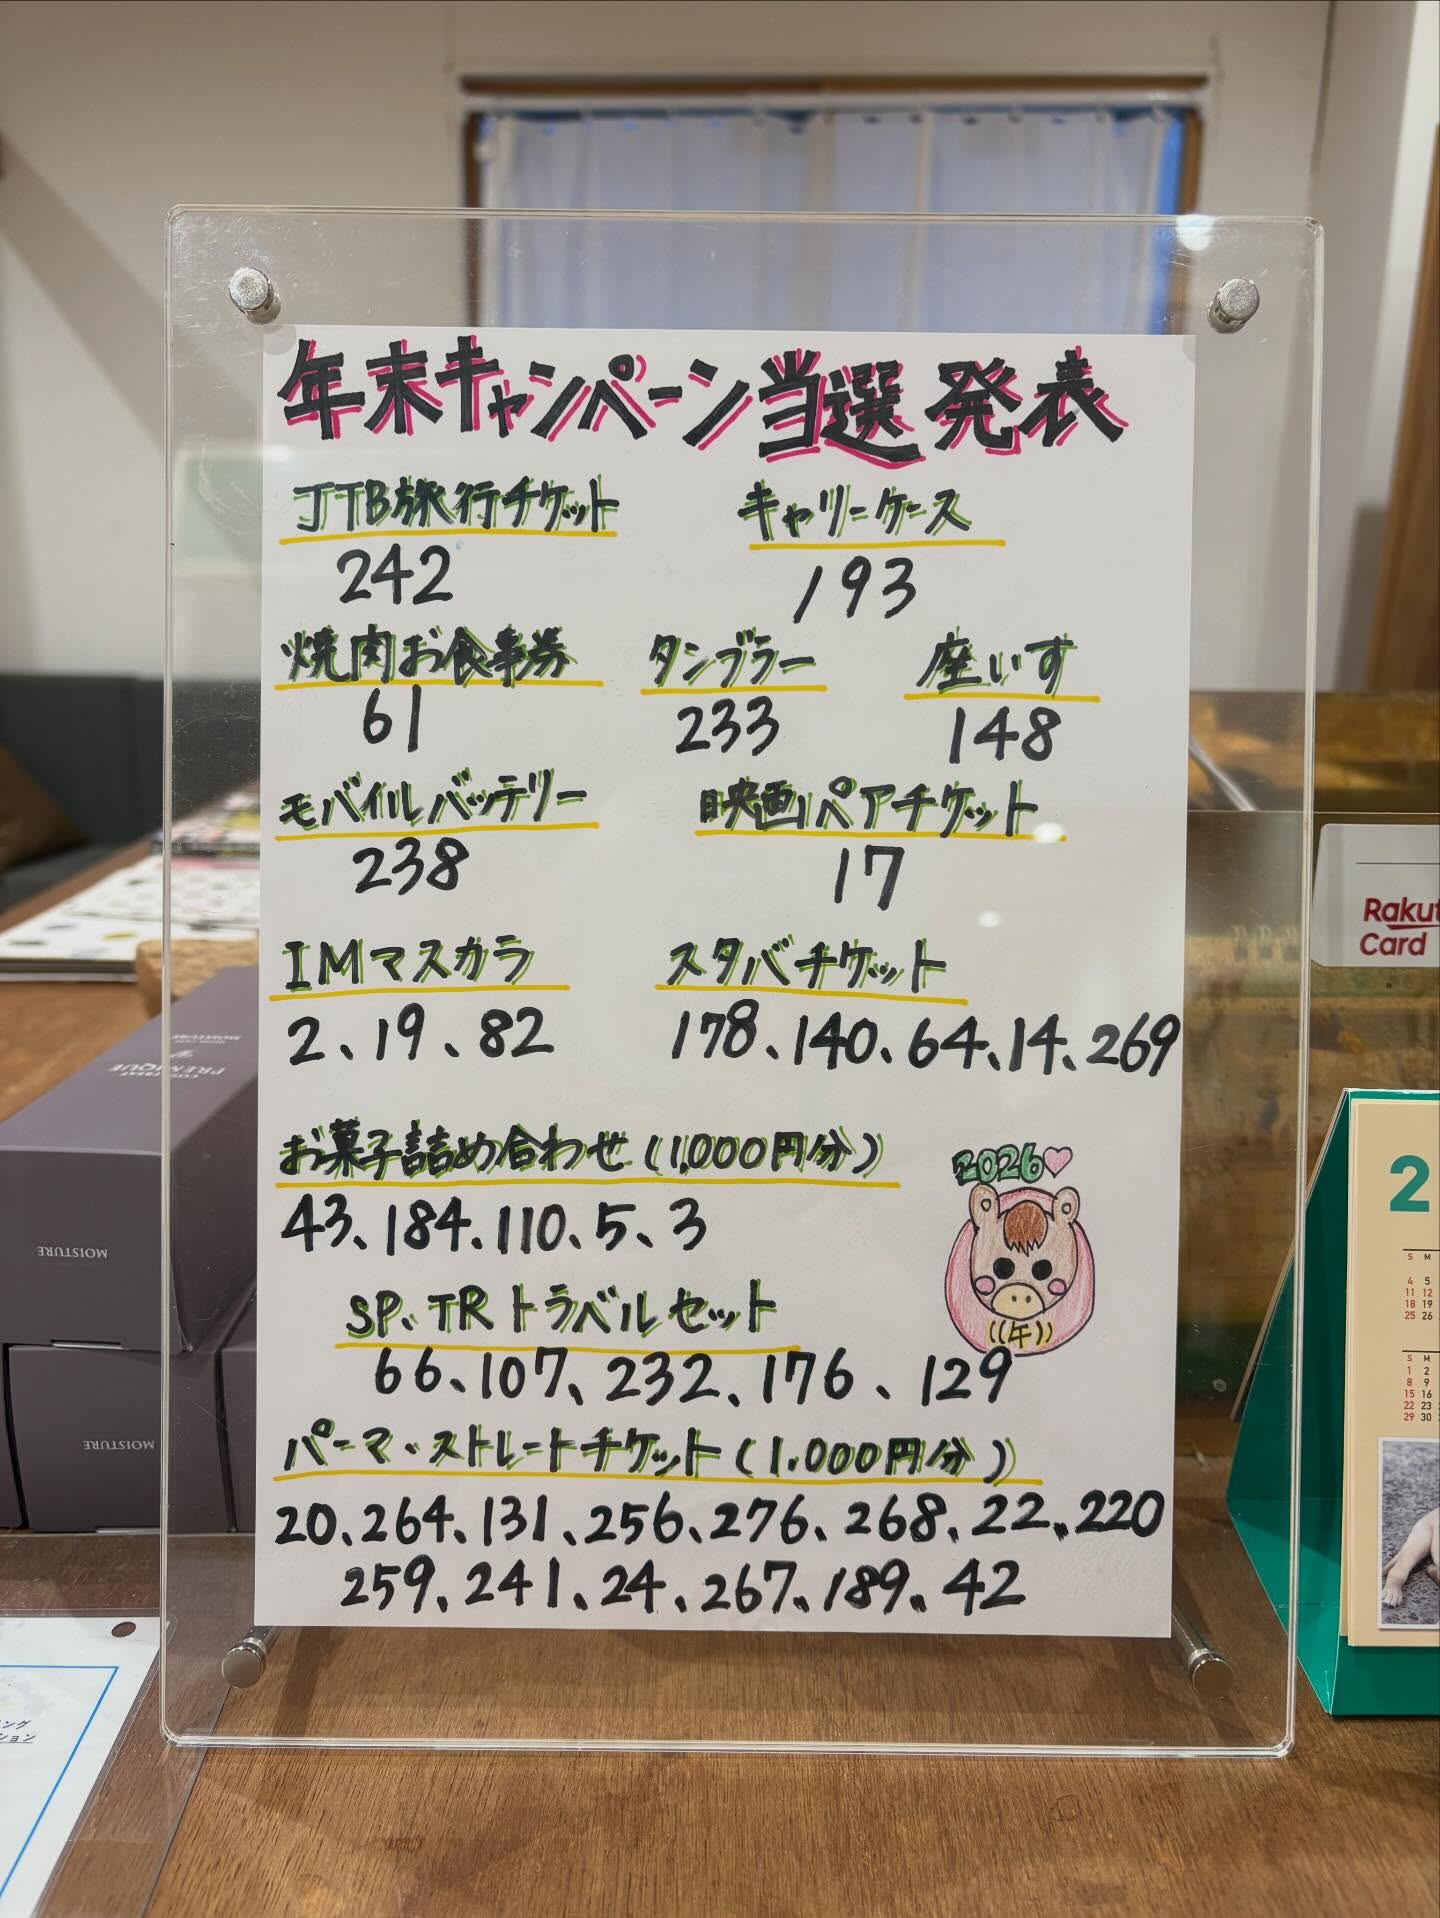 年末キャンペーン当選発表
JTB旅行チケット キャリーケース
242 193
焼肉お食事券 タンブラー 座いす
61 233 148
モバイルバッテリー 映画ペアチケット
238 17
IMマスカラ スタバチケット
2、19、82 178、140、64、14、269
お菓子詰め合わせ(1,000円分)
43、184、110、5、3
2026
SP、TRトラベルセット
((午))
66、107、232、176、129
パーマ・ストレートチケット(1,000円分)
20、264、131、256、276、268、22、220
259、241、24、267、189、42
Rakut
Card
PREMIQUE
MOISTURE
MOISTURE
MOISTURE
2
S M
4 5
11 12
18 19
25 26
S M
1 2
8 9
15 16
22 23
29 30